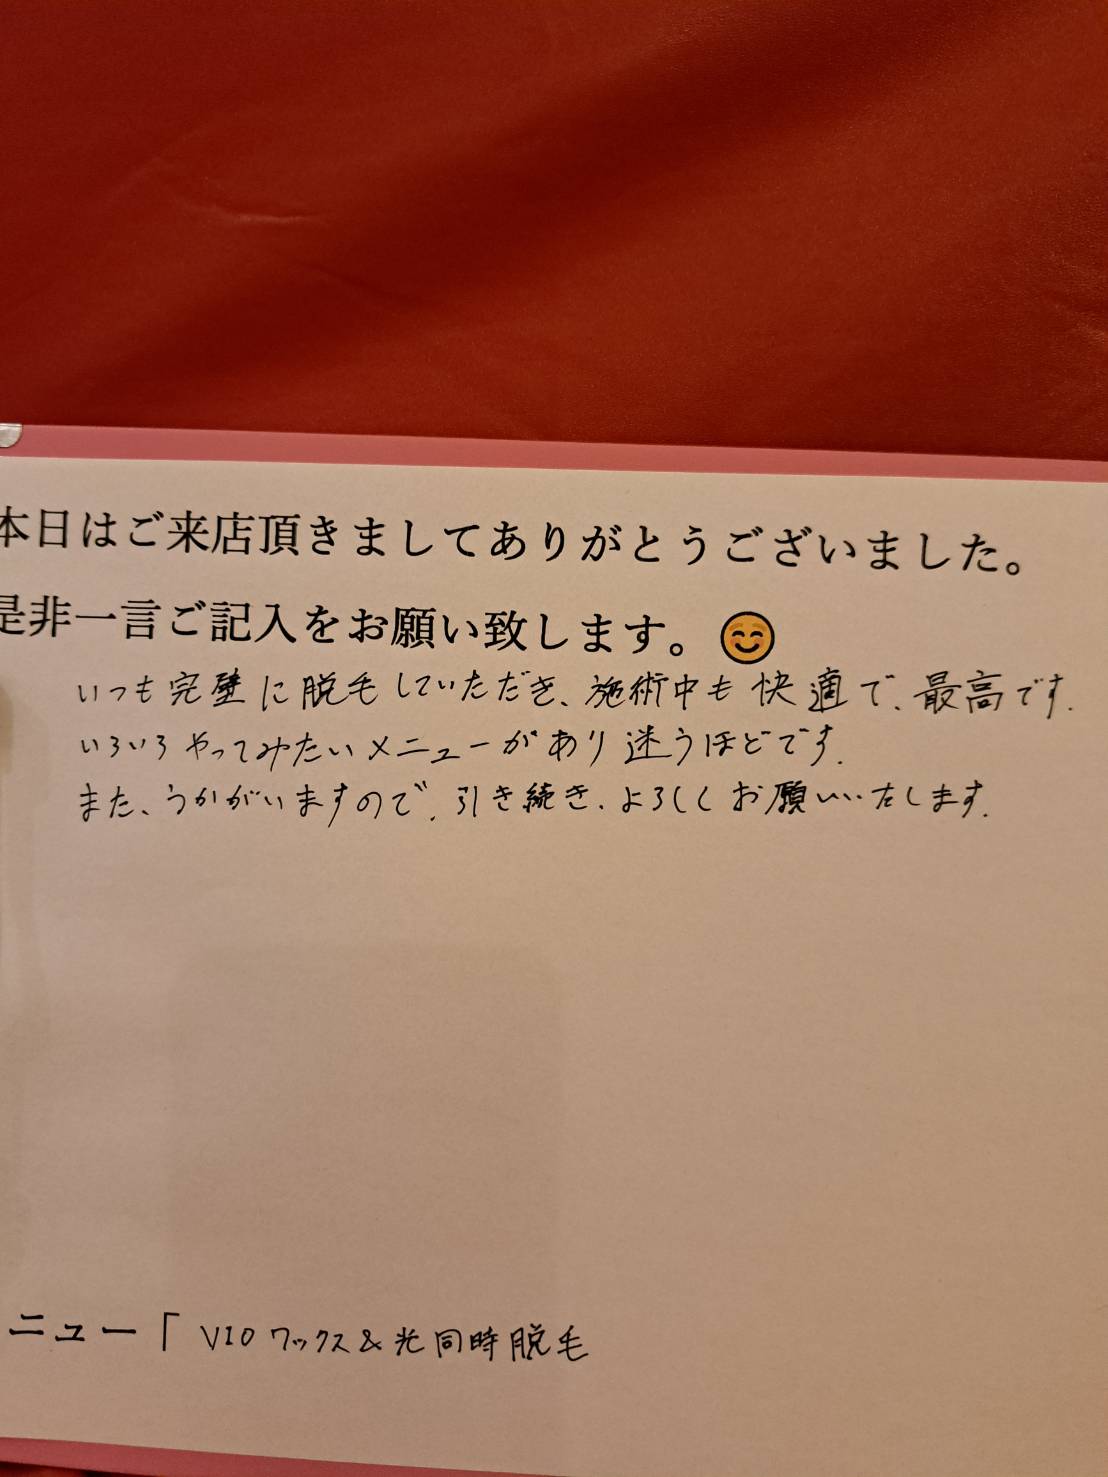 本日はご来店頂きましてありがとうございました。
是非一言ご記入をお願い致します。😊
いつも完璧に脱毛していただき、施術中も快適で、最高です.
いろいろやってみたいメニューがあり迷うほどです.
また、うかがいますので、引き続き、よろしくお願いいたします.
ニュー「VIOワックス&光同時脱毛